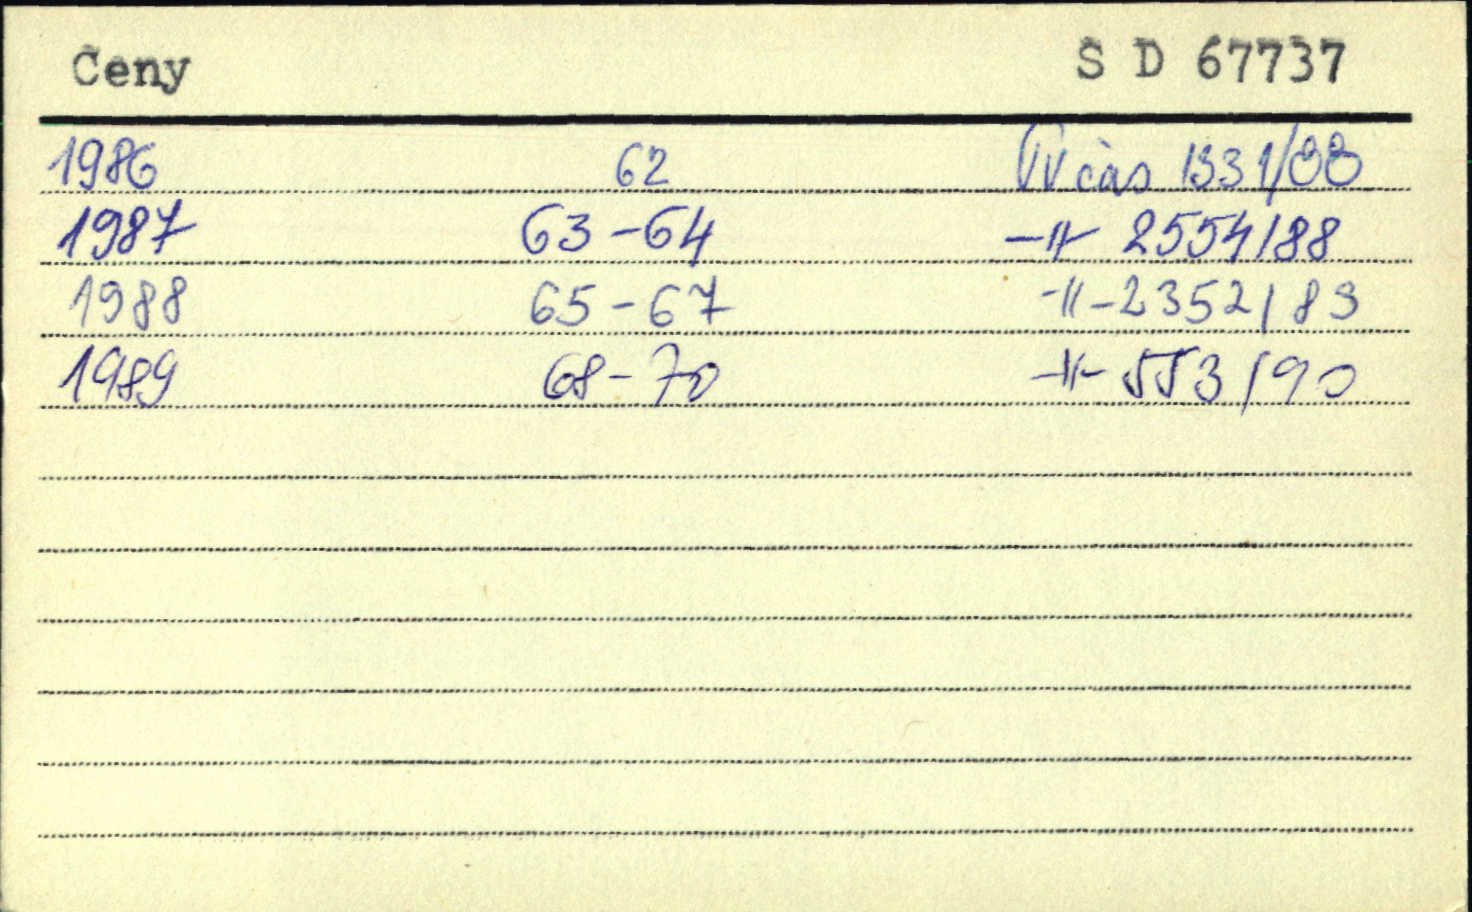 Ceny S D 67737
1986 62 čas 1331/88
1987 63-64 -"- 2554/88
1988 65-67 -"- 2352/89
1989 68-70 -"- 553/90